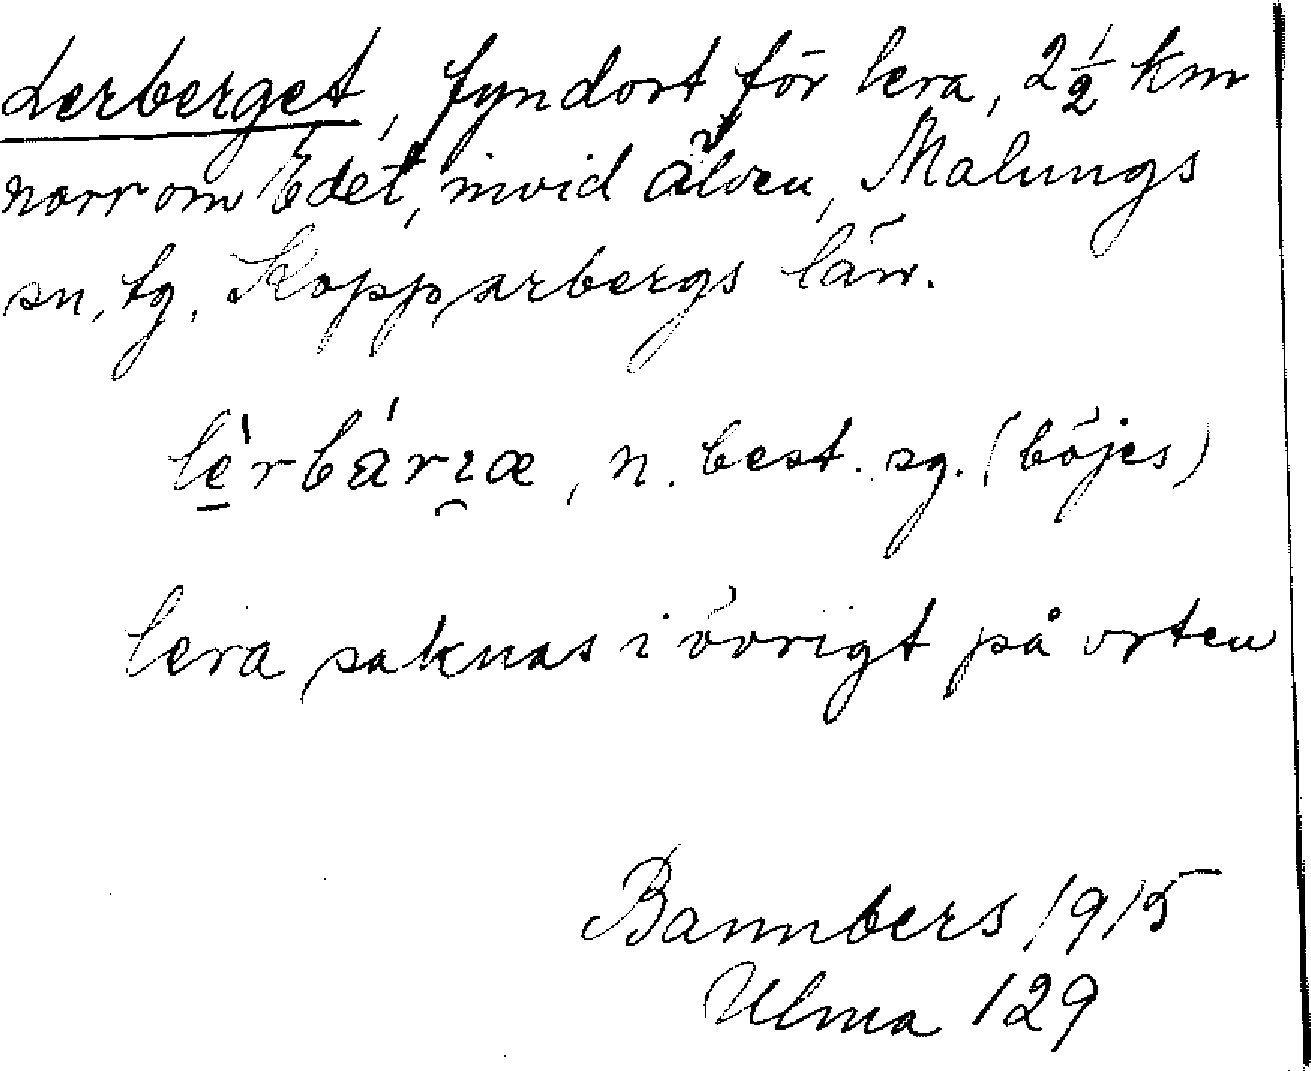 Lerberget, fyndort för lera, 2 1/2 km
norr om Edet, invid älven, Malungs
sn, tg, Kopparbergs län.
n. best. sg. (böjes)
lera saknas i övrigt på orten
Bannbers 1915
Ulma 129